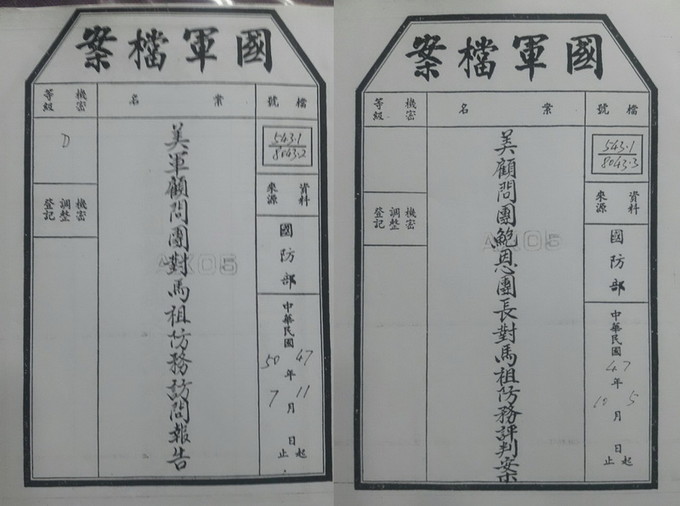 國軍檔案
檔號
543.1
8043.2
資料來源
國防部
中華民國
47
50
年
11
7
月
日
起
止
案名
美軍顧問團對馬祖防務訪問報告
機密等級
D
機密調整登記
AK05
國軍檔案
檔號
543.1
8043.3
資料來源
國防部
中華民國
47
年
5
10
月
日
起
止
案名
美顧問團鮑恩團長對馬祖防務評判案
機密等級
機密調整登記
AK05